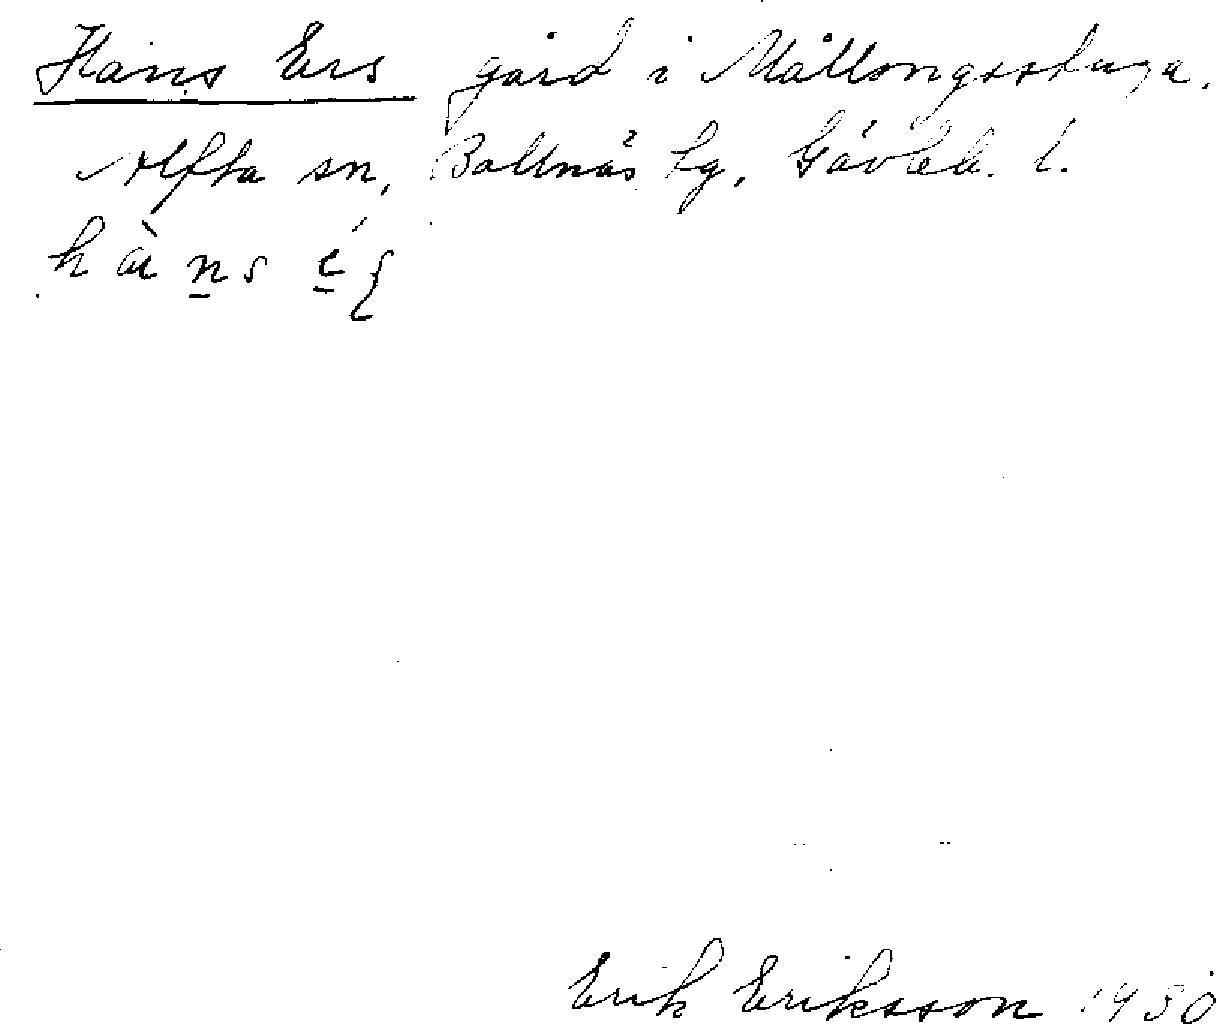 Hans Ers gård i Mållongsstuga.
Alfta sn, Bollnäs tg, Gävleb. l.
hàns é
Erik Eriksson 1930